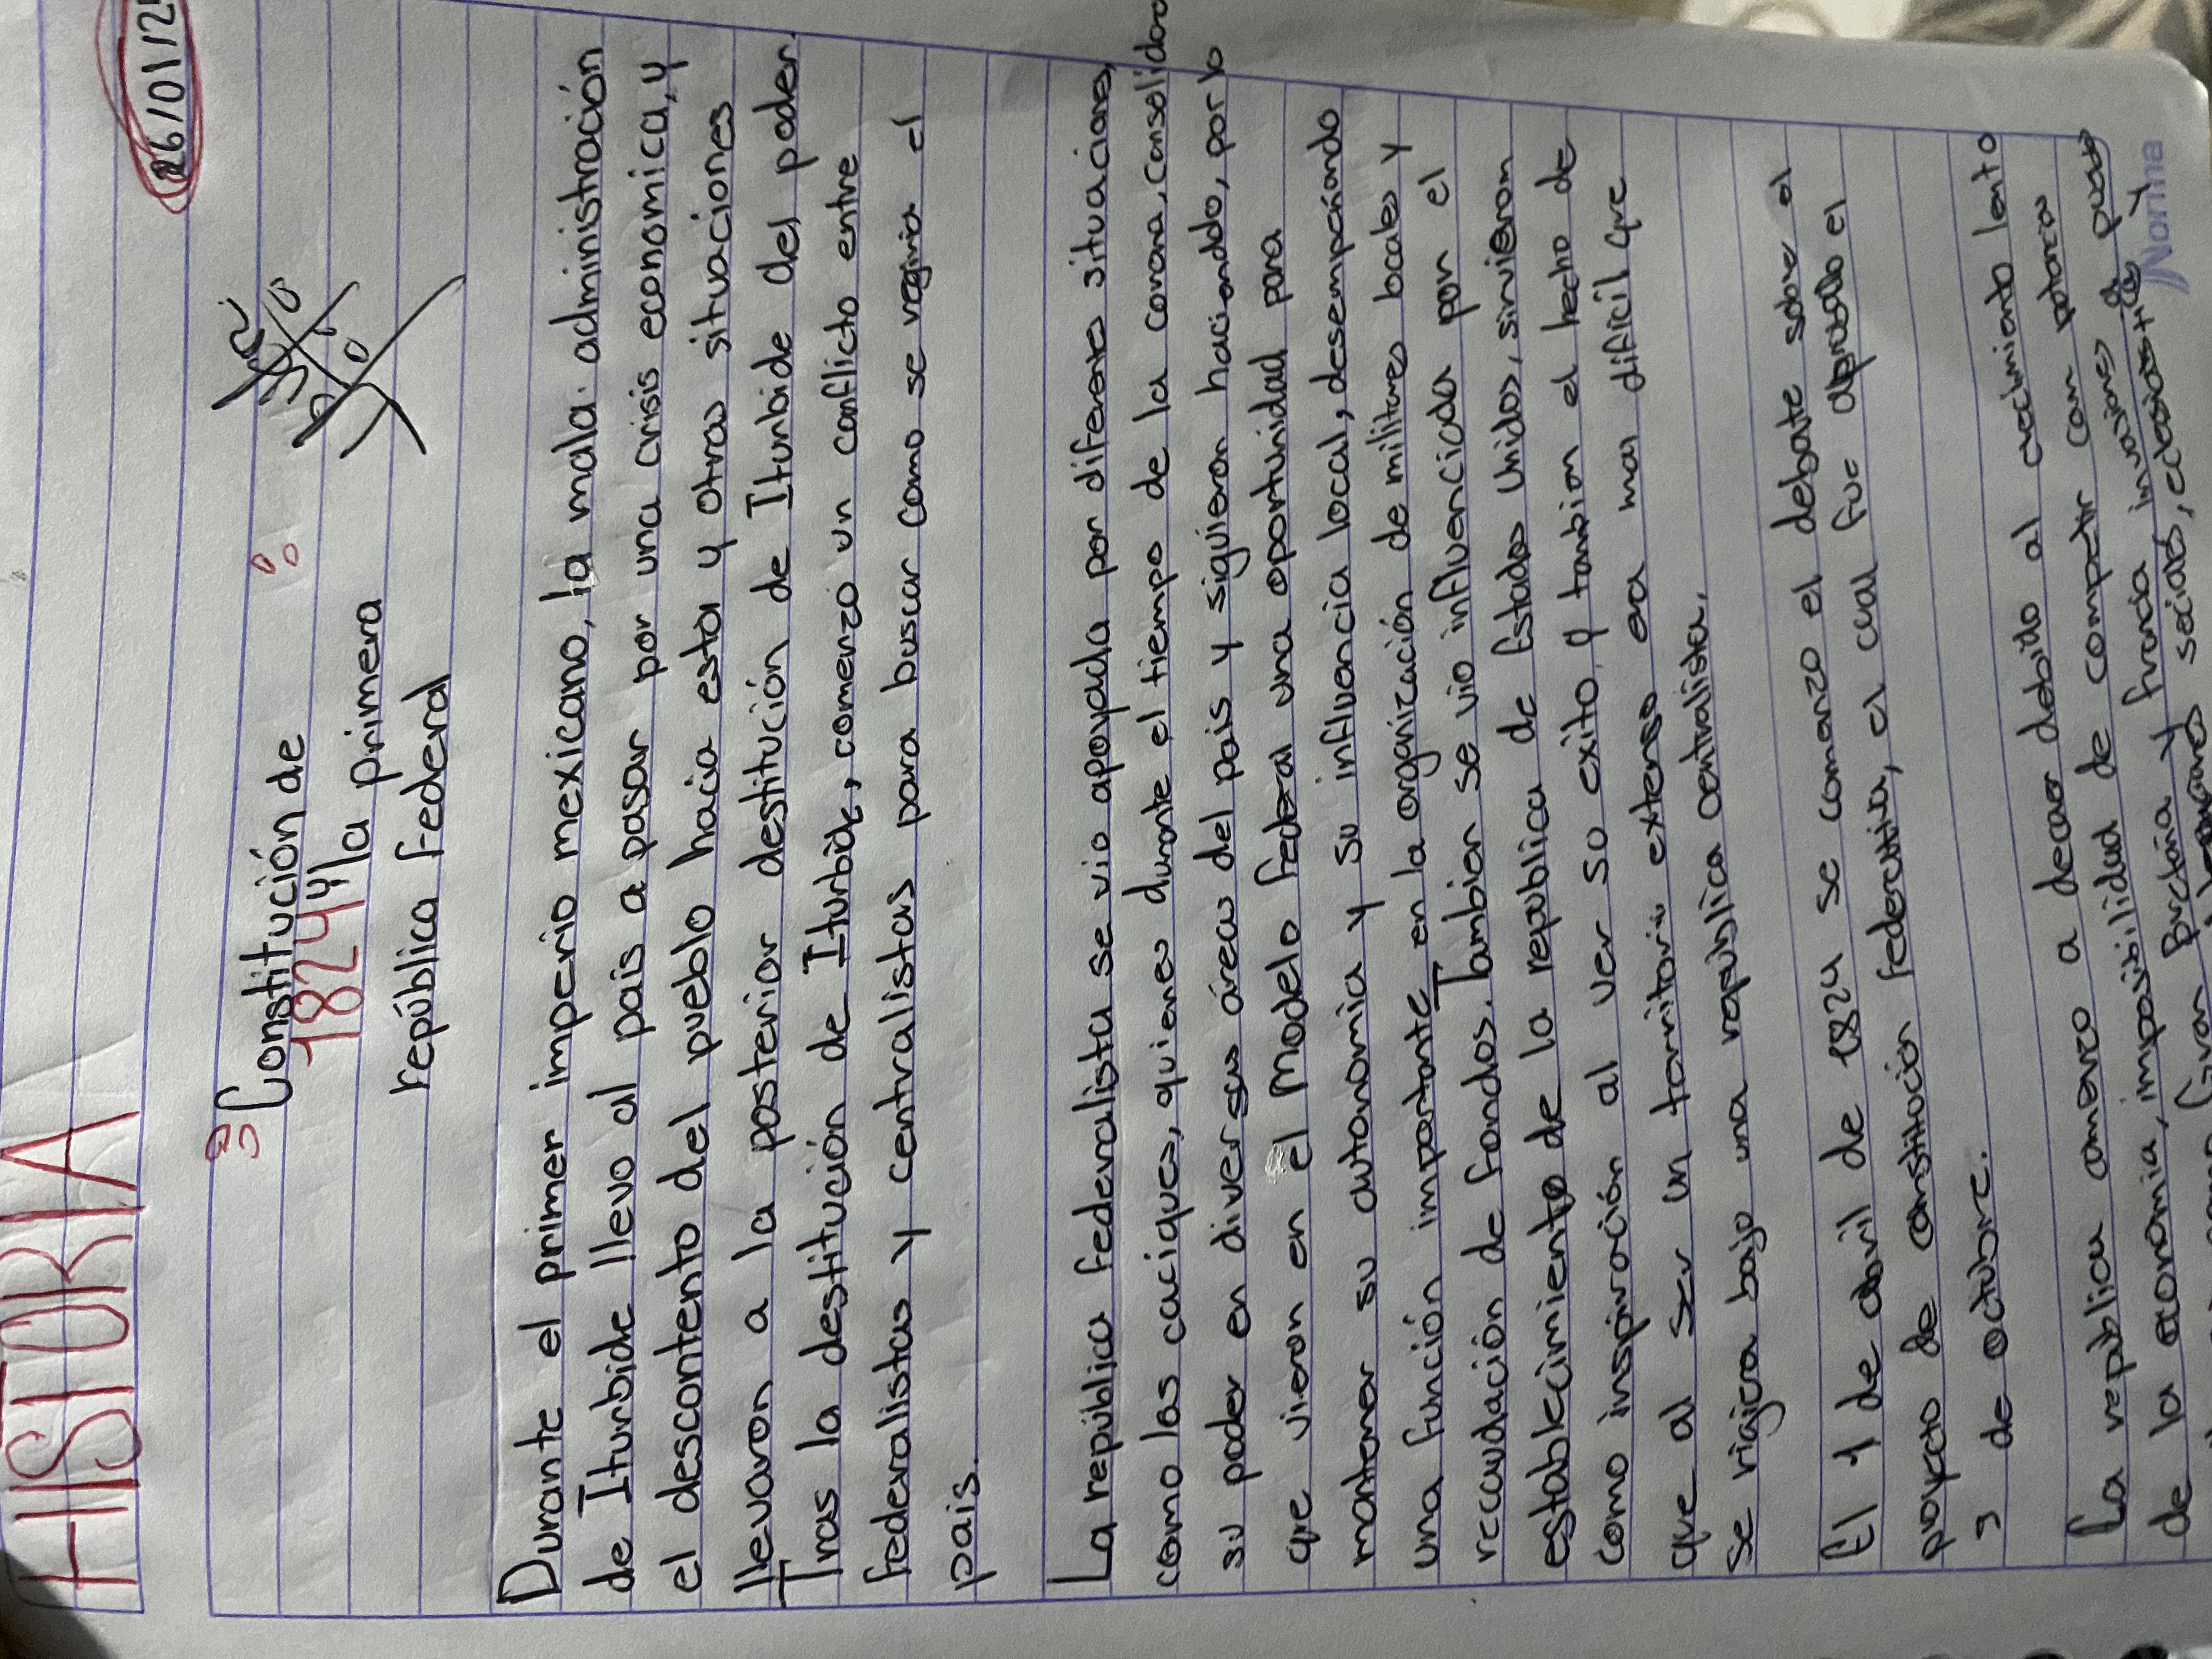 HISTORIA
26/01/2
Constitución de
1824 y la primera
república Federal
Durante el primer imperio mexicano, la mala administración
de Iturbide llevo al país a pasar por una crisis economica, y
el descontento del pueblo hacia esta y otras situaciones
llevaron a la posterior destitución de Iturbide del poder.
Tras la destitución de Iturbide, comenzo un conflicto entre
federalistas y centralistas para buscar como se regiria el
pais.
La república federalista se vio apoyada por diferentes situaciones,
como los caciques, quienes durante el tiempo de la corona, consolidaron
su poder en diversas áreas del país y siguieron haciendolo, por lo
que vieron en el Modelo Federal una oportunidad para
mantener su autonomia y su influencia local, desempeñando
una función importante en la organización de militares locales y
recaudación de fondos. Tambien se vio influenciada por el
establecimiento de la republica de Estados Unidos, sirvieron
como inspiración al ver su exito, y tambien el hecho de
que al ser un territorio extenso era mas dificil que
se rigiera bajo una república centralista.
El 1 de abril de 1824 se comenzo el debate sobre el
proyecto de constitución federativa, el cual fue aprobado el
3 de octubre.
La republica comenzo a decaer debido al crecimiento lento
de la economia, imposibilidad de competir con potencias
Francia invasiones a puertos
sociales, eclesiasticos y
Gran
Norma